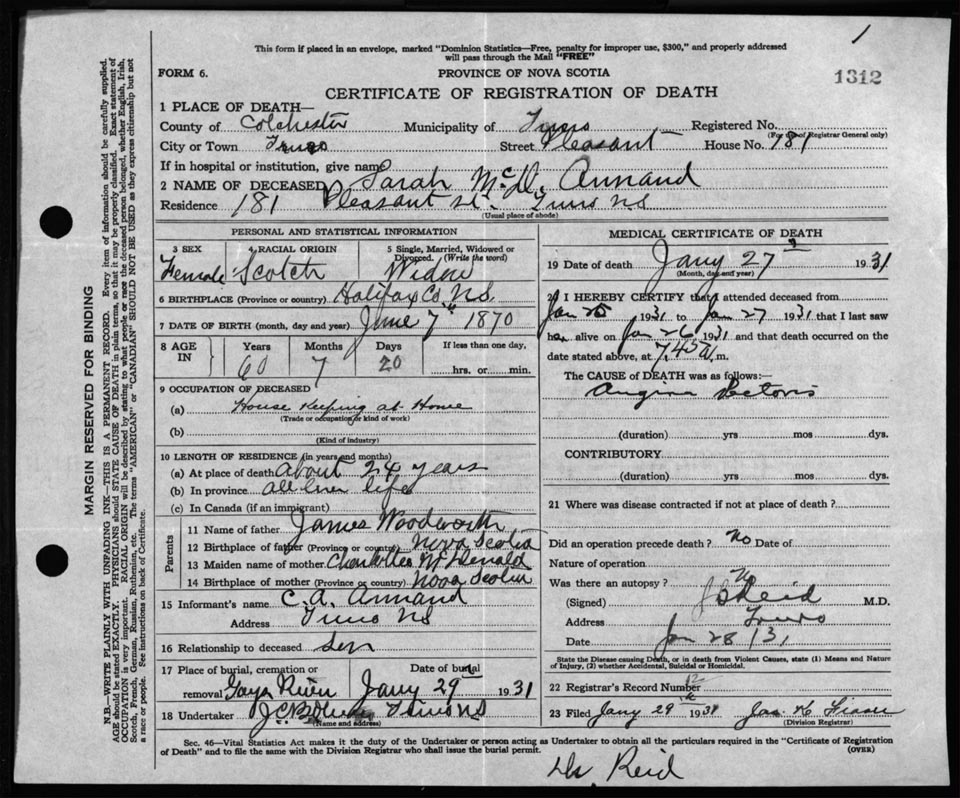 1
This form if placed in an envelope, marked "Dominion Statistics—Free, penalty for improper use, $300," and properly addressed
will pass through the Mail "FREE"
FORM 6.
PROVINCE OF NOVA SCOTIA
1312
CERTIFICATE OF REGISTRATION OF DEATH
1 PLACE OF DEATH—
County of Colchester Municipality of Truro Registered No.
(For use of Registrar General only)
City or Town Truro Street Pleasant House No. 181
If in hospital or institution, give name
2 NAME OF DECEASED Sarah McD. Annand
Residence 181 Pleasant St. Truro NS
(Usual place of abode)
PERSONAL AND STATISTICAL INFORMATION
3 SEX 4 RACIAL ORIGIN 5 Single, Married, Widowed or
Divorced. (Write the word)
Female Scotch Widow
6 BIRTHPLACE (Province or country) Halifax Co. N.S.
7 DATE OF BIRTH (month, day and year) June 7th 1870
8 AGE IN Years Months Days If less than one day,
60 7 20 hrs. or min.
9 OCCUPATION OF DECEASED
(a) House Keeping at Home
(Trade or occupation or kind of work)
(b)
(Kind of industry)
10 LENGTH OF RESIDENCE (in years and months)
(a) At place of death About 24 years
(b) In province all her life
(c) In Canada (if an immigrant)
Parents
11 Name of father James Woodworth
12 Birthplace of father (Province or country) Nova Scotia
13 Maiden name of mother Charlotte McDonald
14 Birthplace of mother (Province or country) Nova Scotia
15 Informant's name C. A. Annand
Address Truro NS
16 Relationship to deceased Son
17 Place of burial, cremation or Date of burial
removal Gays River Jany 29 1931
18 Undertaker Truro NS
(Name and address)
MEDICAL CERTIFICATE OF DEATH
19 Date of death Jany 27 1931
(Month, day and year)
20 I HEREBY CERTIFY that I attended deceased from
Jan 25 1931 to Jan 27 1931 that I last saw
her alive on Jan 26 1931 and that death occurred on the
date stated above, at 7.45 A m.
The CAUSE of DEATH was as follows:—
Angina Pectoris
(duration) yrs mos dys.
CONTRIBUTORY
(duration) yrs mos dys.
21 Where was disease contracted if not at place of death?
Did an operation precede death? No Date of
Nature of operation
Was there an autopsy? No
(Signed) Reid M.D.
Address Truro
Date Jan 28/31
State the Disease causing Death, or in death from Violent Causes, state (1) Means and Nature
of Injury, (2) whether Accidental, Suicidal or Homicidal.
22 Registrar's Record Number 12
23 Filed Jany 29 1931 Jas. Fraser
(Division Registrar)
Sec. 46—Vital Statistics Act makes it the duty of the Undertaker or person acting as Undertaker to obtain all the particulars required in the "Certificate of Registration
of Death" and to file the same with the Division Registrar who shall issue the burial permit.
(OVER)
Dr Reid
MARGIN RESERVED FOR BINDING
N.B.—WRITE PLAINLY WITH UNFADING INK—THIS IS A PERMANENT RECORD. Every item of information should be carefully supplied.
AGE should be stated EXACTLY. PHYSICIANS should STATE CAUSE OF DEATH in plain terms, so that it may be properly classified. Exact statement of
OCCUPATION is very important. RACIAL ORIGIN will be described by stating to what people or race the deceased person belonged, whether English, Irish,
Scotch, French, German, Russian, Ruthenian, etc. The terms "AMERICAN" or "CANADIAN" SHOULD NOT BE USED as they express citizenship but not
a race or people. See instructions on back of Certificate.